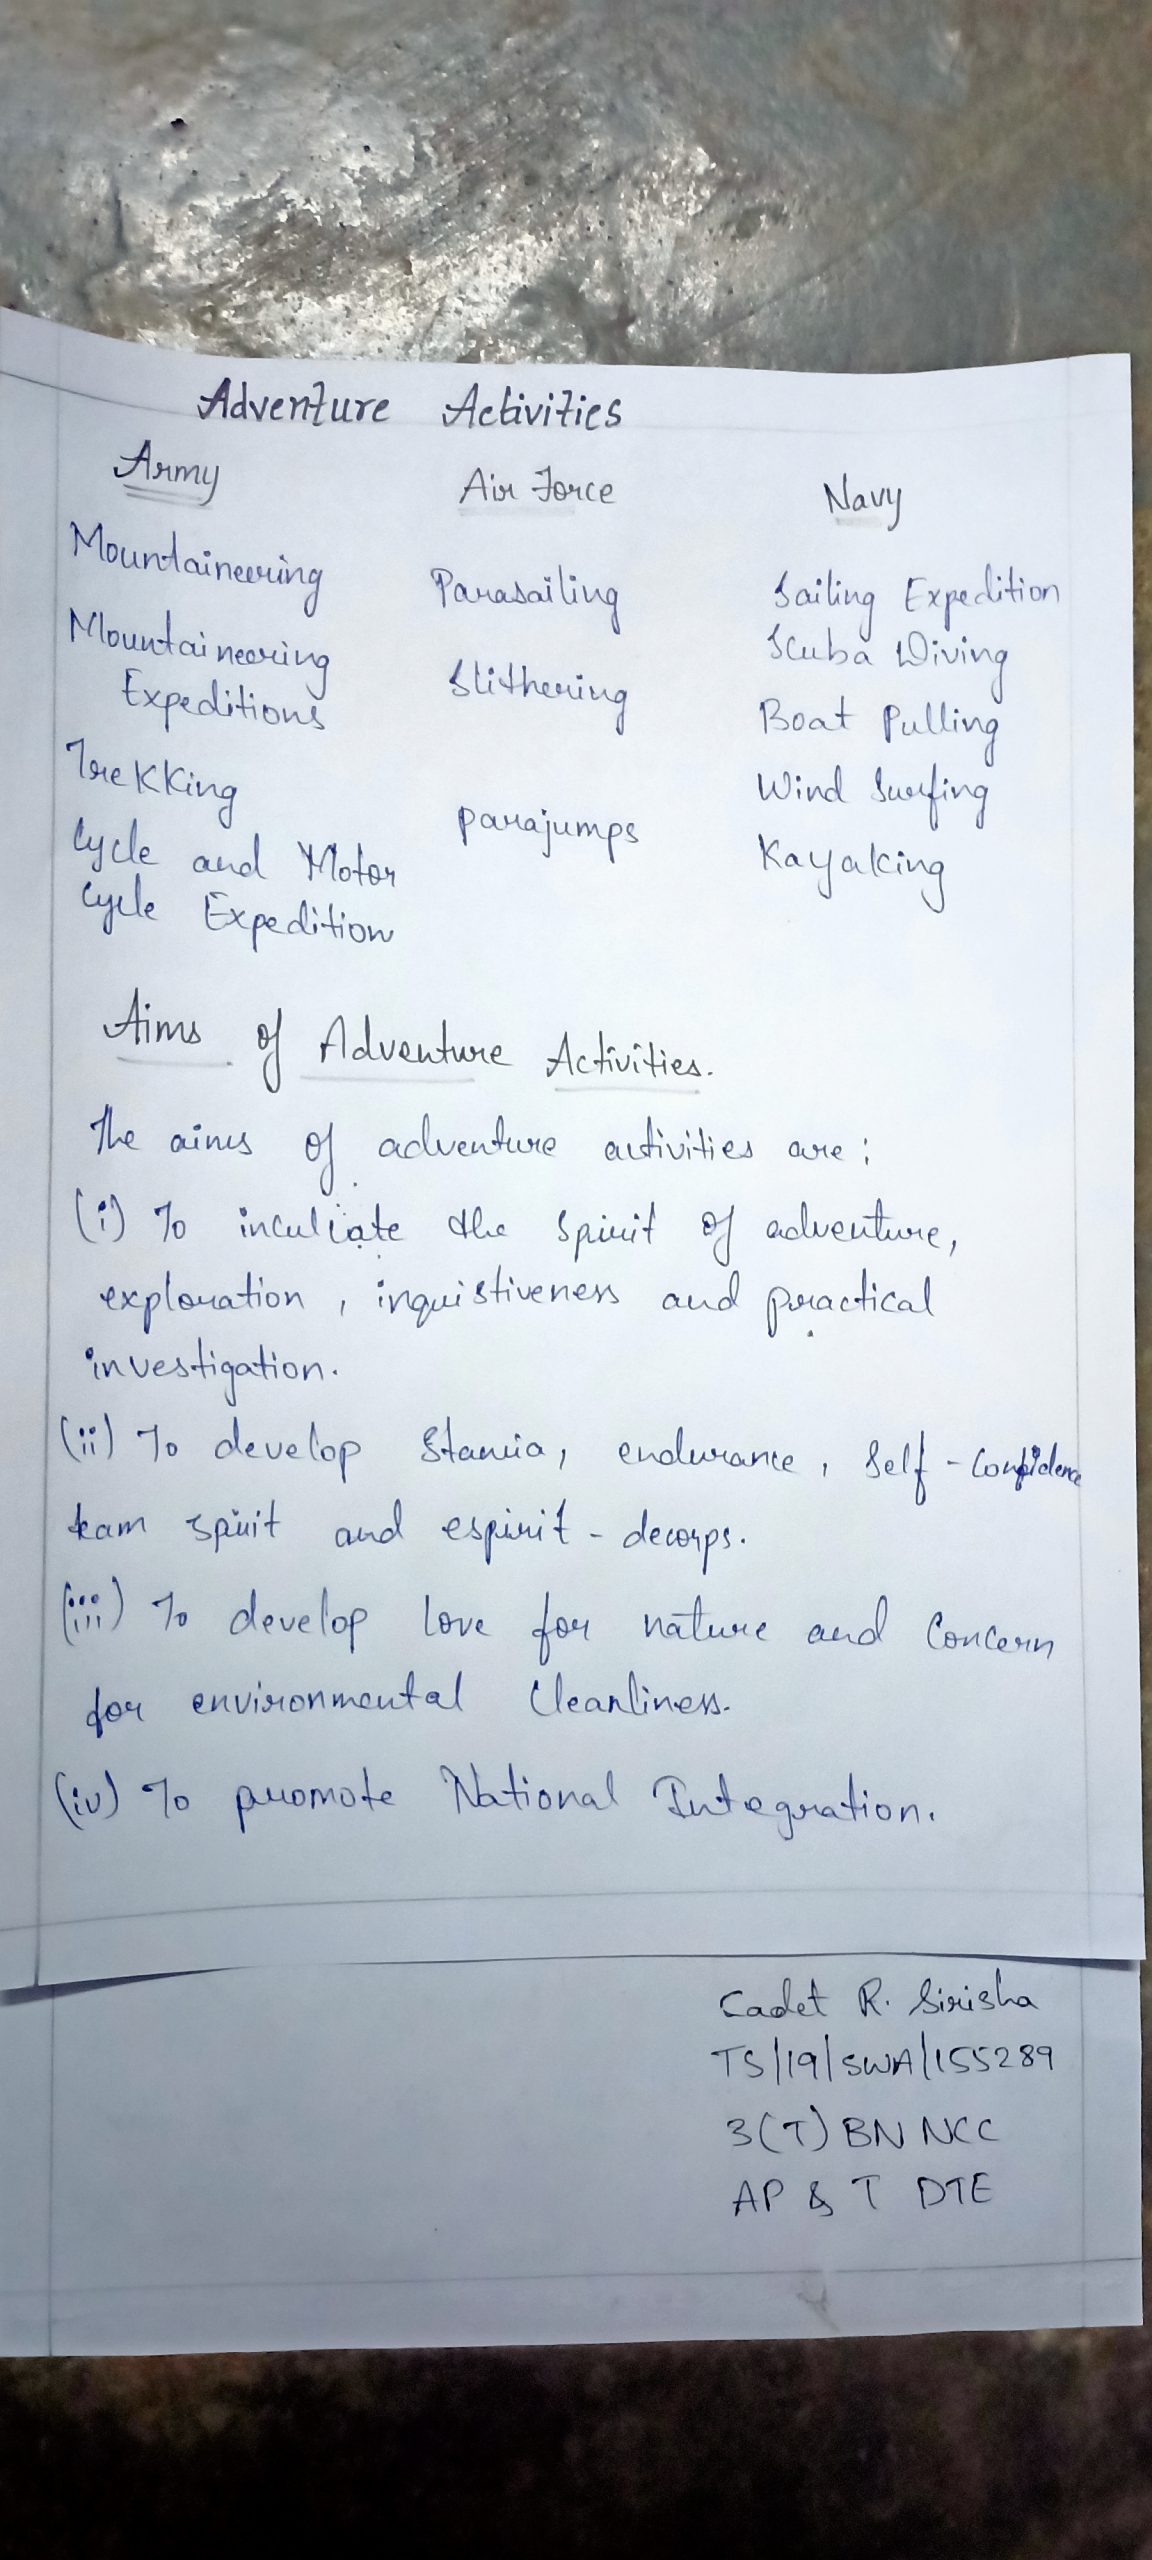 Adventure Activities
Army Air Force Navy
Mountaineering Parasailing Sailing Expedition
Mountaineering Slithering Scuba Diving
Expeditions Boat Pulling
Trekking Wind Surfing
Cycle and Motor parajumps Kayaking
Cycle Expedition
Aims of Adventure Activities.
The aims of adventure activities are :
(i) To inculcate the spirit of adventure,
exploration , inquistiveness and practical
investigation.
(ii) To develop Stamia, endurance , Self - Confidence
team spirit and espirit - decorps.
(iii) To develop love for nature and Concern
for environmental Cleanliness.
(iv) To promote National Integration.
Cadet R. Sirisha
TS/19/SWA/155289
3(T) BN NCC
AP & T DTE